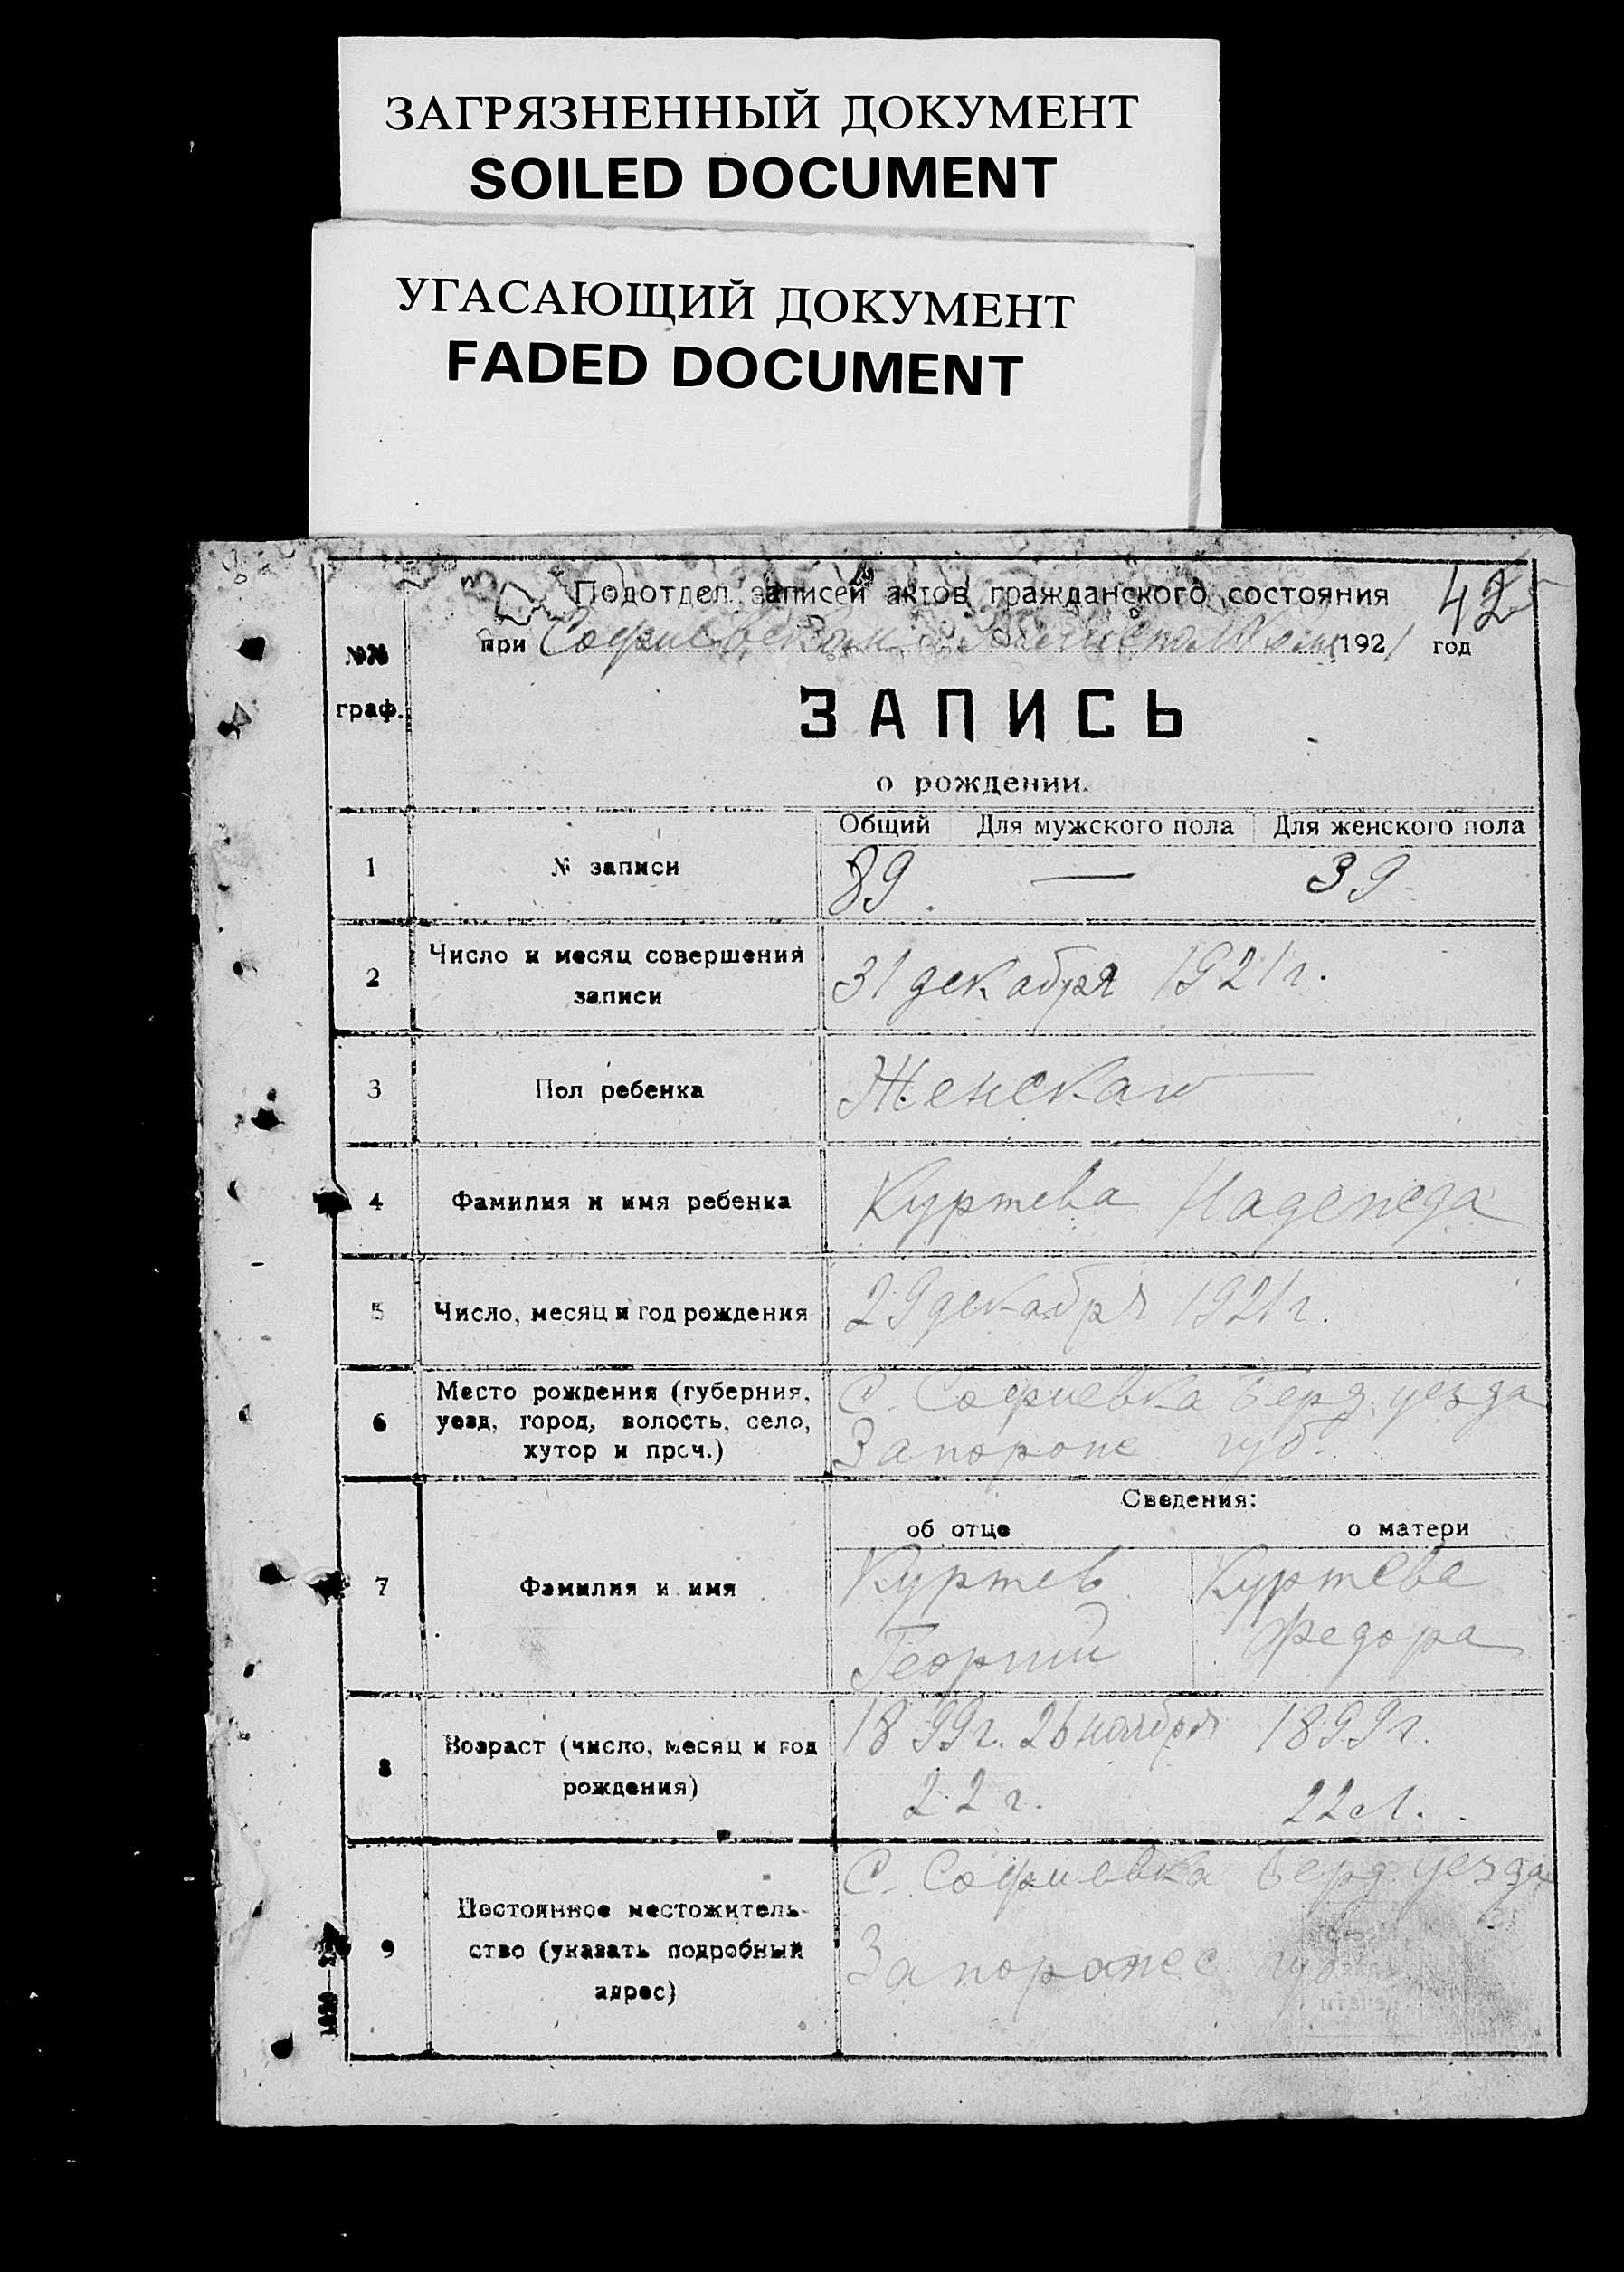 ЗАГРЯЗНЕННЫЙ ДОКУМЕНТ
SOILED DOCUMENT
УГАСАЮЩИЙ ДОКУМЕНТ
FADED DOCUMENT
42
Подотдел записей актов гражданского состояния
при Софиевском 1921 год
№№
граф.
ЗАПИСЬ
о рождении.
Общий Для мужского пола Для женского пола
1 № записи 89 — 39
2 Число и месяц совершения
записи
31 декабря 1921 г.
3 Пол ребенка Женскаго
4 Фамилия и имя ребенка Куртева Надежда
5 Число, месяц и год рождения 29 декабря 1921 г.
6 Место рождения (губерния,
уезд, город, волость, село,
хутор и проч.)
С. Софиевка Берд. уезда
Запорож губ.
Сведения:
об отце о матери
7 Фамилия и имя
Куртев Куртева
Георгий Федора
8 Возраст (число, месяц и год
рождения)
1899 г. 26 ноября 1899 г.
22 г. 22 л.
9 Постоянное местожитель-
ство (указать подробный
адрес)
С. Софиевка Берд уезда
Запорожс губ.